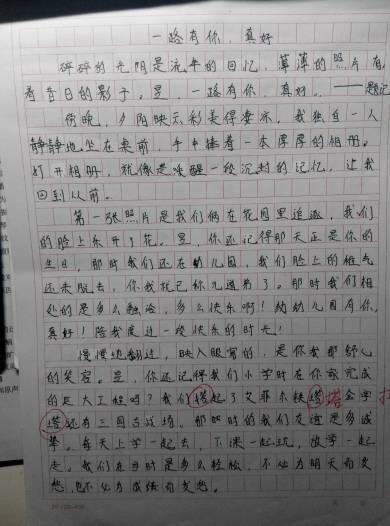 一路有你，真好
碎碎的光阴是流年的回忆，薄薄的照片有
着昔日的影子。昱，一路有你，真好。——题记
傍晚，夕阳映云彩美得要冰，我独自一人
静静地坐在桌前，手中捧着一本厚厚的相册。
打开相册，就像是唤醒一段沉封的记忆，让我
回到从前。
第一张照片是我们俩在花园里追逐，我们
的脸上乐开了花。昱，你还记得那天正是你的
生日，那时我们还在幼儿园，我们脸上的稚气
还未脱去，你我就已称兄道弟了。那时我们相
处的是多么融洽，多么快乐啊！幼幼儿园有你，
真好！陪我度过一段快乐的时光！
慢慢地翻过，映入眼帘的，是你我那舒心
的笑容。昱，你还记得我们小学时在你家完成
的是大工程吗？我们塔起了艾菲尔铁塔金字
塔还有三国古战场。那时的我们友谊是多诚
挚。每天上学一起去，下课一起玩，放学一起
走。我们在当时是多么轻松，不必为明天而发
愁，也不必为成绩而发愁。
塔